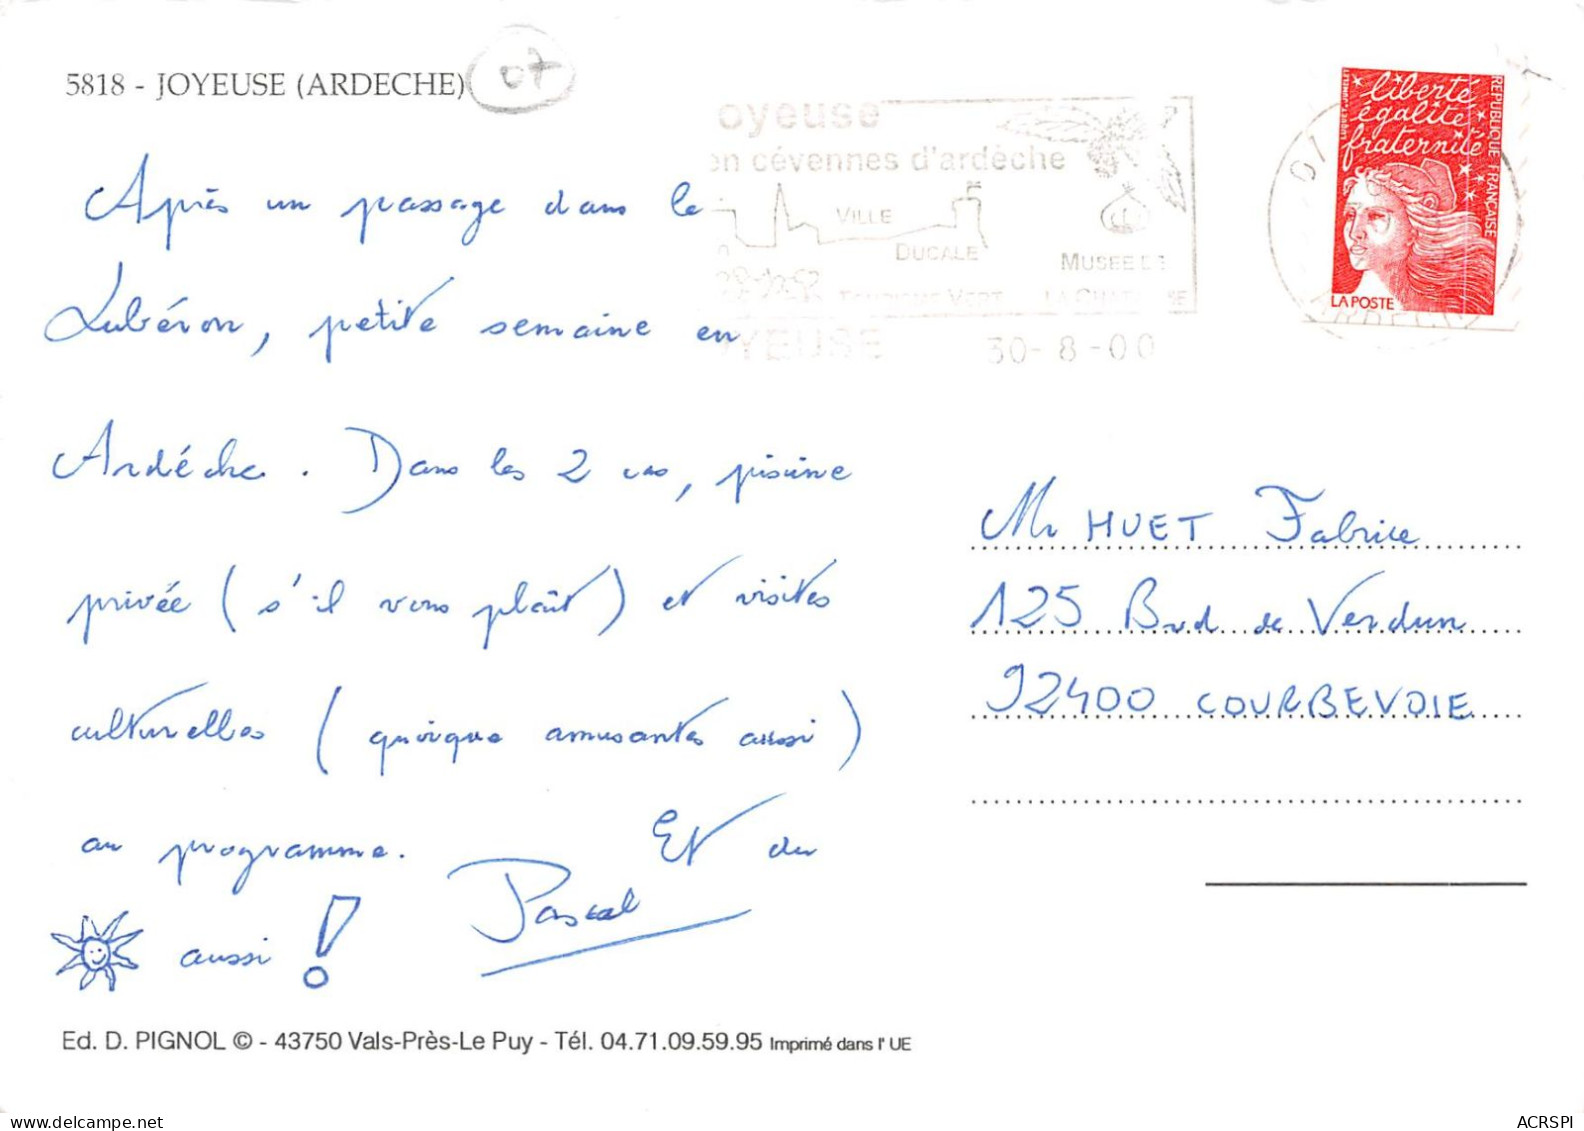 5818 - JOYEUSE (ARDECHE)
07
oyeuse
en cévennes d'ardèche
VILLE
DUCALE
MUSEE DE
TOURISME VERT
LA CHATAIGNE
YEUSE
30-8-00
07
liberté
égalité
fraternité
REPUBLIQUE FRANÇAISE
LA POSTE
Après un passage dans le
Lubéron, petite semaine en
Ardéche. Dans les 2 cas, piscine
privée (s'il vous plaît) et visites
culturelles (quoique amusantes aussi)
au programme. Et du
aussi !
Pascal
Mr HUET Fabrice
125 Bvd de Verdun
92400 COURBEVOIE
Ed. D. PIGNOL © - 43750 Vals-Près-Le Puy - Tél. 04.71.09.59.95 Imprimé dans l' UE
ACRSPI